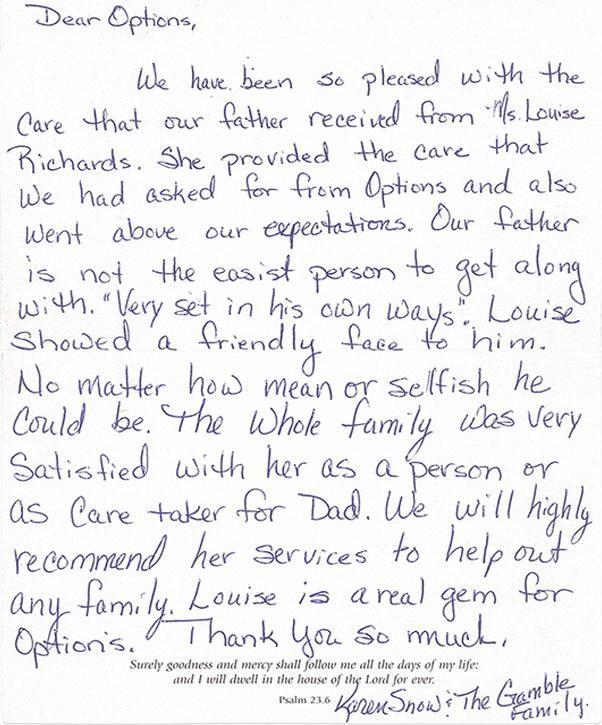 Dear Options,
We have been so pleased with the
care that our father received from Ms. Louise
Richards. She provided the care that
we had asked for from Options and also
went above our expectations. Our father
is not the easist person to get along
with. "Very set in his own ways". Louise
showed a friendly face to him.
No matter how mean or selfish he
could be. The whole family was very
satisfied with her as a person or
as care taker for Dad. We will highly
recommend her services to help out
any family. Louise is a real gem for
Option's. Thank you so much.
Surely goodness and mercy shall follow me all the days of my life:
and I will dwell in the house of the Lord for ever.
Psalm 23.6
Karen Snow & The Gamble
Family.